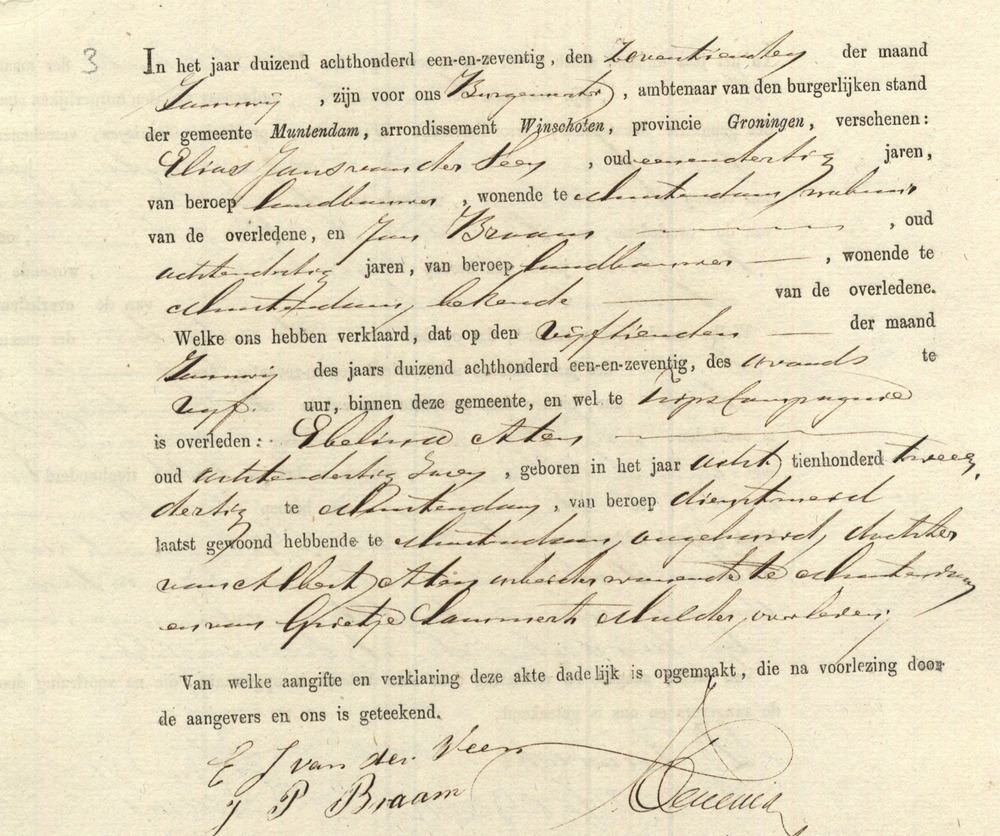 3 In het jaar duizend achthonderd een-en-zeventig, den Zeventienden der maand
Januarij, zijn voor ons Burgemeester, ambtenaar van den burgerlijken stand
der gemeente Muntendam, arrondissement Winschoten, provincie Groningen, verschenen:
Elias Jans van der Veen, oud eenendertig jaren,
van beroep landbouwer, wonende te Muntendam, nabuur
van de overledene, en Jan Braam, oud
achtendertig jaren, van beroep landbouwer, wonende te
Muntendam, bekende van de overledene.
Welke ons hebben verklaard, dat op den vijftienden der maand
Januarij des jaars duizend achthonderd een-en-zeventig, des avonds te
vijf uur, binnen deze gemeente, en wel te Tripscompagnie
is overleden: Ebelina Aten
oud achtendertig jaren, geboren in het jaar acht tienhonderd tweeen
dertig te Muntendam, van beroep dienstmeid
laatst gewoond hebbende te Muntendam, ongehuwd, dochter
van Albert Aten arbeider wonende te Muntendam
en van Grietje Lammerts Mulder, overleden.
Van welke aangifte en verklaring deze akte dadelijk is opgemaakt, die na voorlezing door
de aangevers en ons is geteekend.
E J van der Veen
J P Braam